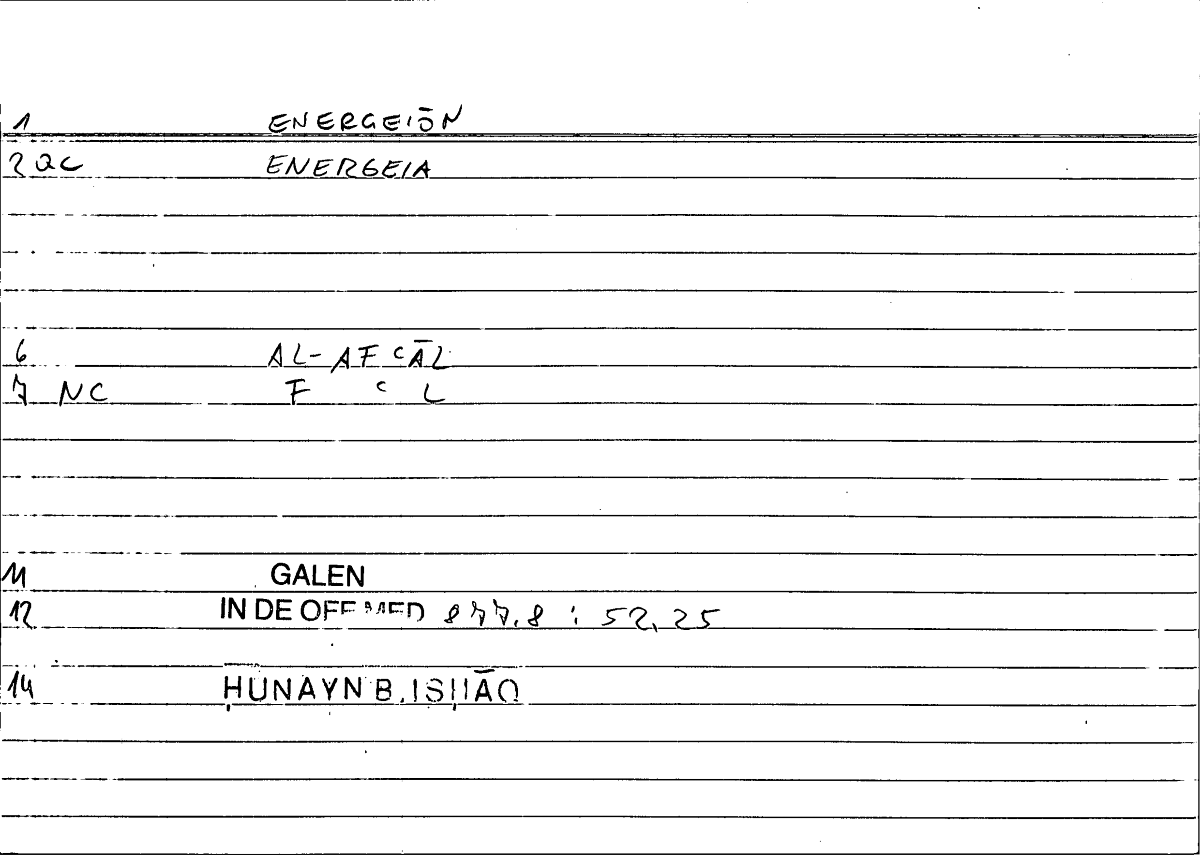 1 ENERGEIŌN
2 QC ENERGEIA
6 AL-AFʿĀL
7 NC F ʿ L
11 GALEN
12 IN DE OFF MED 877.8 : 52,25
14 ḤUNAYN B. ISḤĀQ